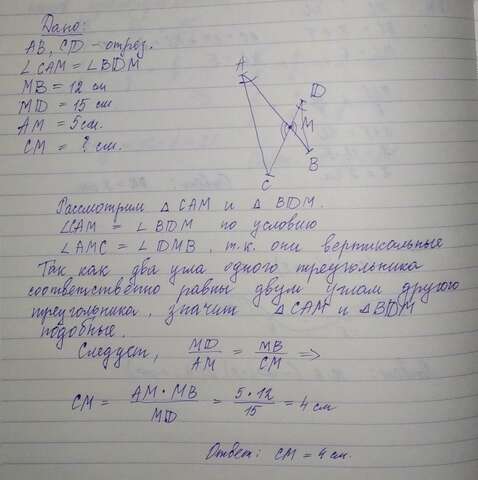 Дано:
AB, CD – отрез.
∠CAM = ∠BDM
MB = 12 см
MD = 15 см
AM = 5 см.
CM = ? см.
A
D
M
B
C
Рассмотрим △ CAM и △ BDM.
∠CAM = ∠BDM по условию
∠AMC = ∠DMB, т.к. они вертикальные
Так как два угла одного треугольника
соответственно равны двум углам другого
треугольника, значит △CAM и △BDM
подобные.
Следует, MD/AM = MB/CM ⇒
CM = AM·MB/MD = 5·12/15 = 4 см
Ответ: CM = 4 см.